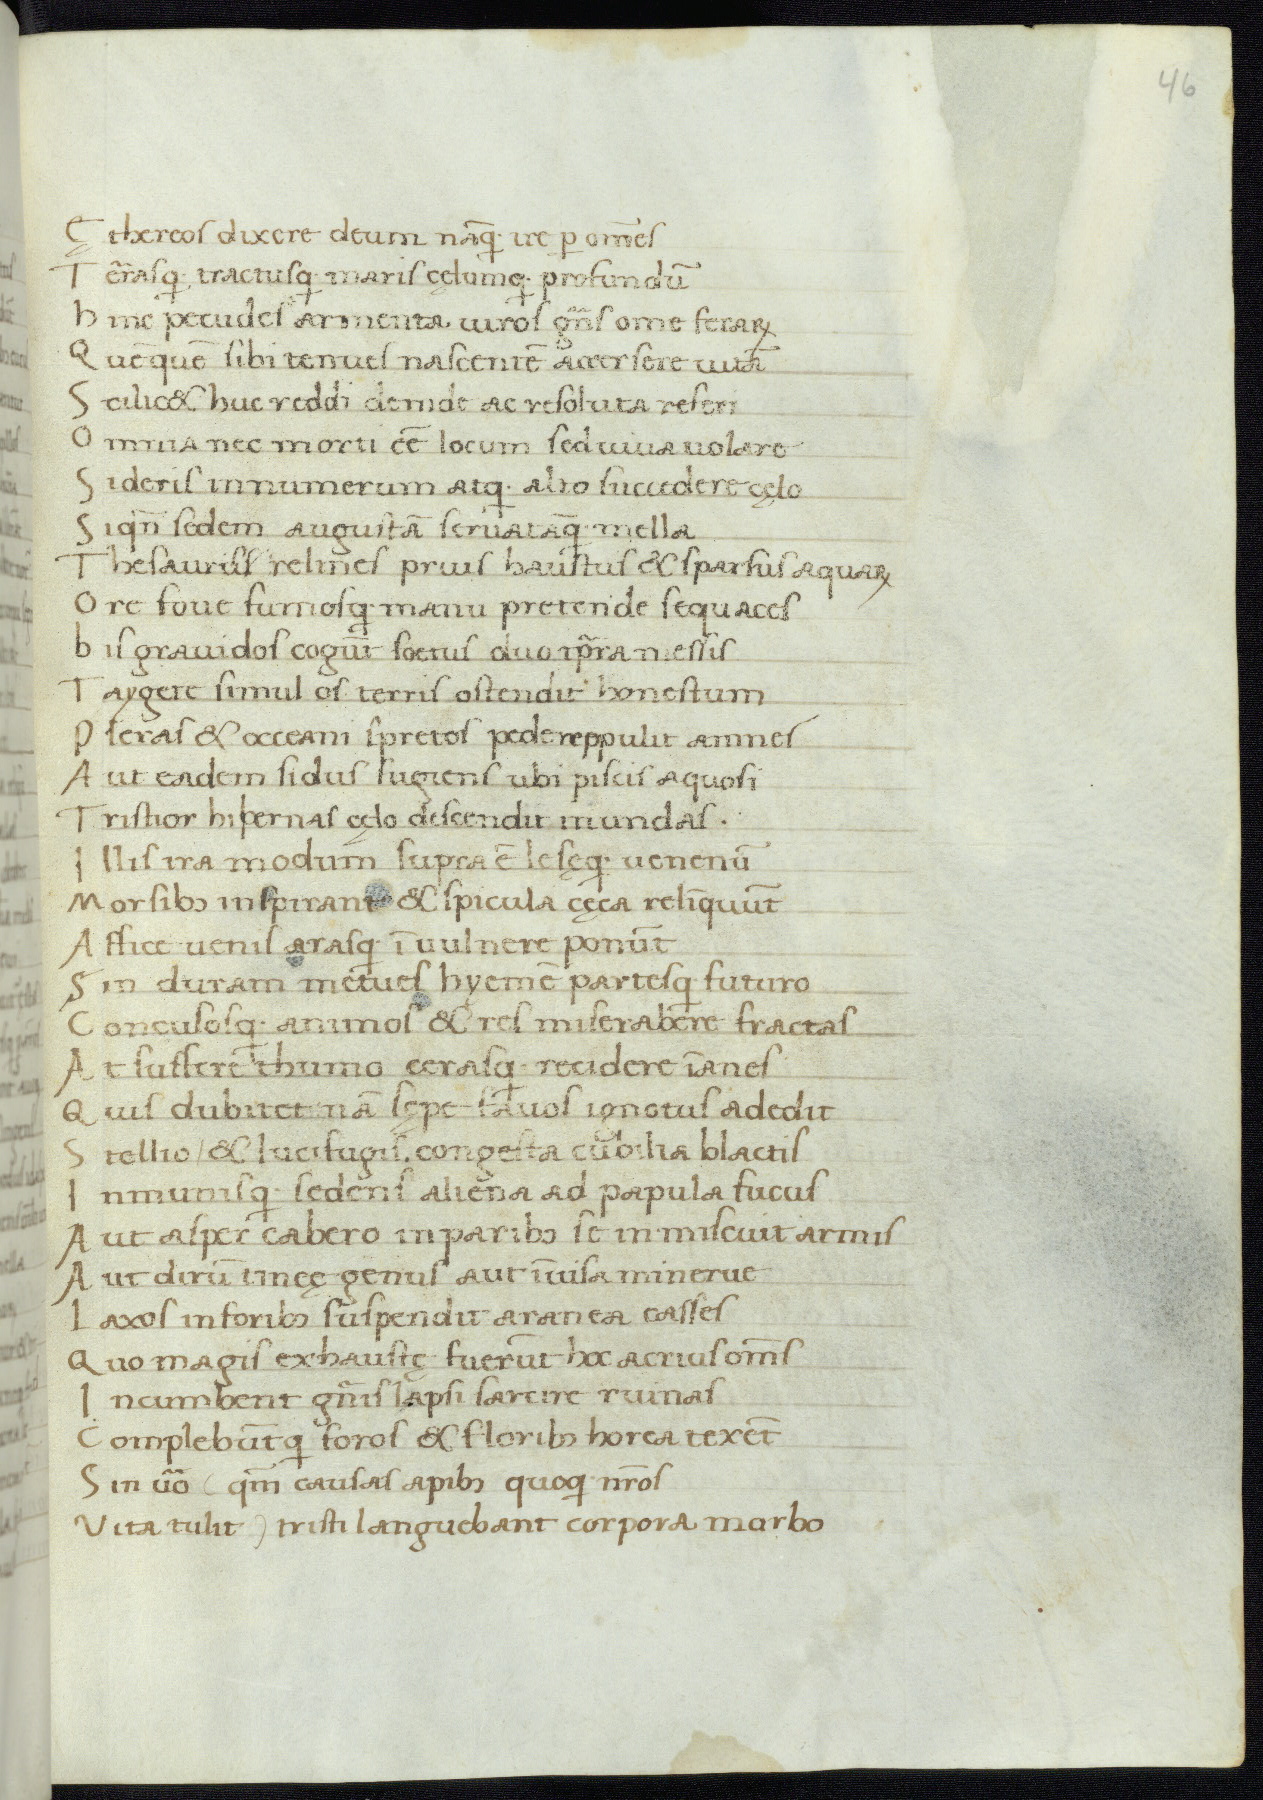 46
Ę thereos dixere deum nāq· ire p om̄es
T er̄asq· tractusq· maris cęlumq· profundū
h inc pecudes armenta uiros gn̄s ome ferarꝝ
Q uēquē sibi tenues nascentē accersere uitā
S cilic& huc reddi deinde ac resoluta referri
O mnia nec morti eē locum sed uiua uolare
S ideris innumerum atq· alto succedere cęlo
S iqn̄ sedem augustā seruataq̄· mella
T hesauris relines prius haustus & sparsus aquarꝝ
O re foue fumosq· manu pretende sequaces
b is grauidos cogūt foetus duo tp̄ra messis
T aygete simul os terris ostendit honestum
P leras & occeani spretos pede reppulit amnes
A ut eadem sidus fugiens ubi piscis aquosi
T ristior hibernas cęlo descendit in undas.
I llis ira modum supra ē lesęq· uenenū
M orsibꝫ inspirant & spicula cęca relinquūt
A ffice uenis arasq· ī uulnere ponūt
S in duram metues hyemē partesq· futuro
C oncusosq· animos & res miserabere fractas
A t suffire thumo cerasq· recidere īanes
Q uis dubitet nā sępe fauos ignotus adedit
S tellio / & lucifugis. congesta cubilia blactis
I nmunisq· sedens aliena ad papula fucus
A ut asper cabero inparibꝫ se inmiscuit armis
A ut dirū tinęę genus aut īuisa minerue
L axos in foribꝫ suspendit aranea casses
Q uo magis exhaustę fuerīt hoc acrius om̄s
I ncumbent gn̄is lapsi sarcire ruinas
C omplebūtq· foros & floribꝫ horea texēt
S in uō ( qm̄ causas apibꝫ quoq· nr̄os
V ita tulit ) tristi languebant corpora morbo